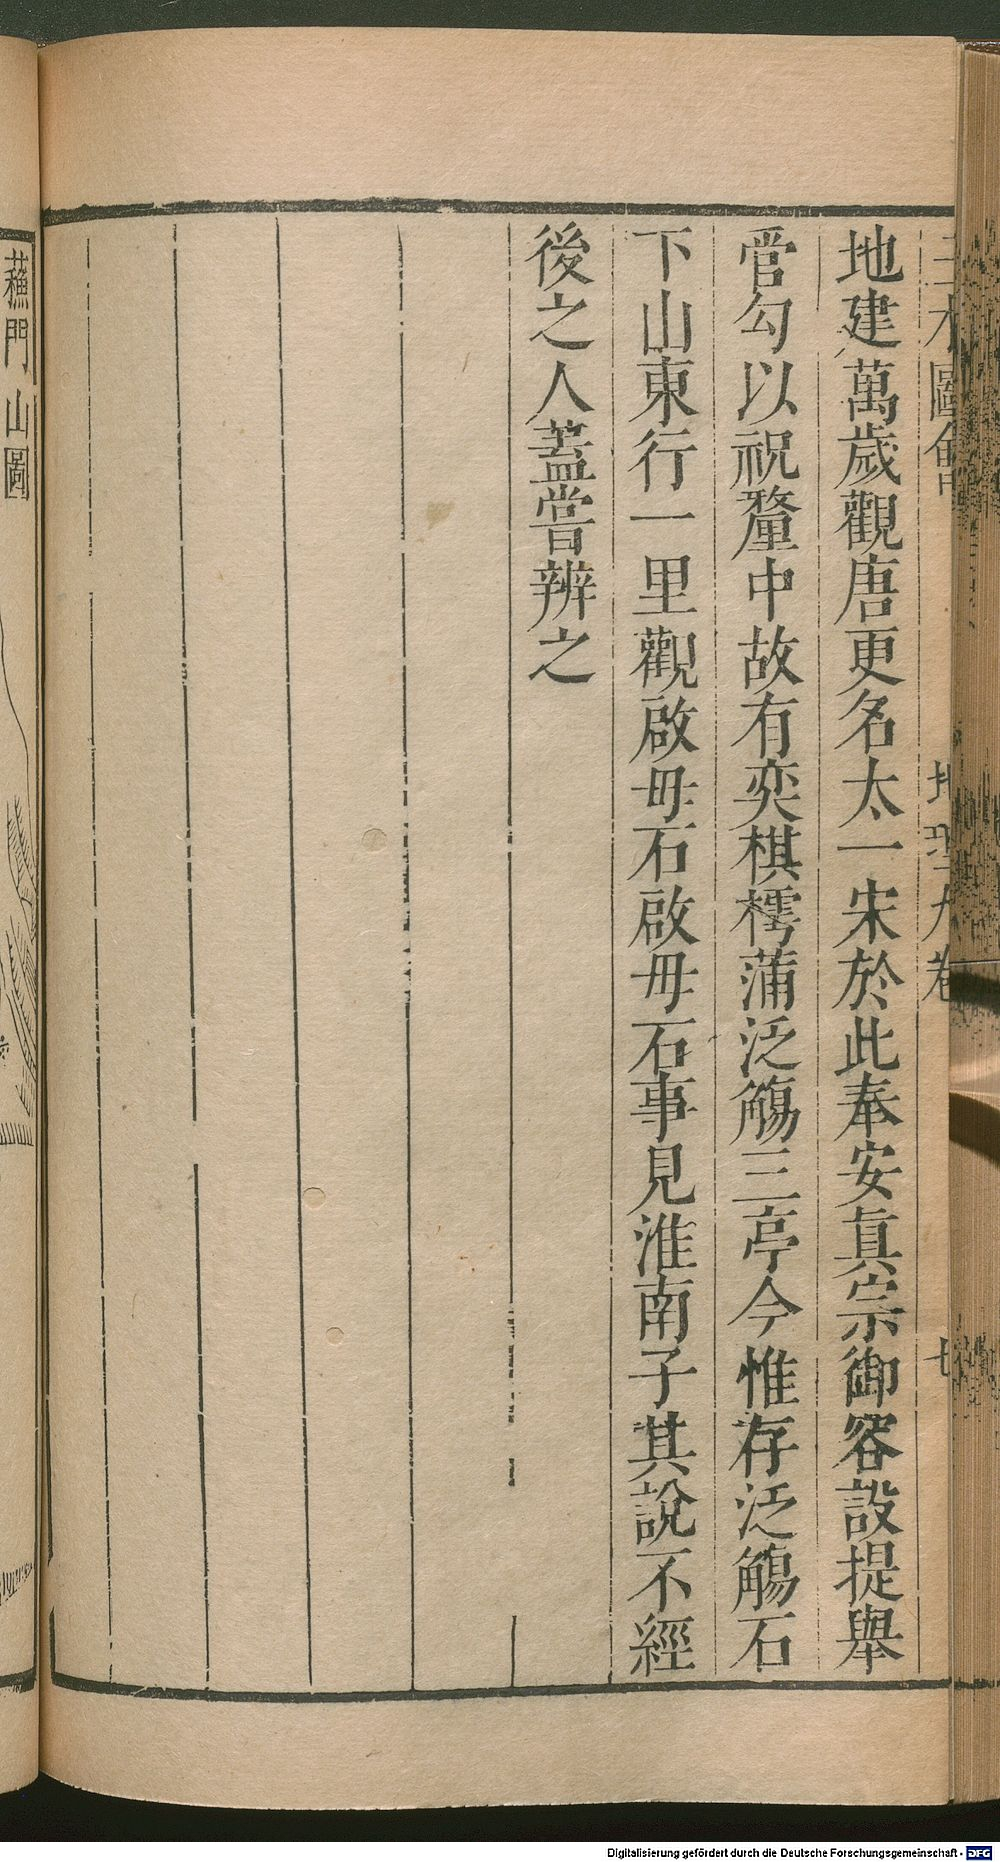 三才圖會 地理九卷 七
地建萬歲觀唐更名太一宋於此奉安真宗御容設提舉
管勾以祝釐中故有奕棋樗蒲泛觴三亭今惟存泛觴石
下山東行一里觀啟母石啟母石事見淮南子其說不經
後之人蓋嘗辨之
蘇門山圖
Digitalisierung gefördert durch die Deutsche Forschungsgemeinschaft - DFG